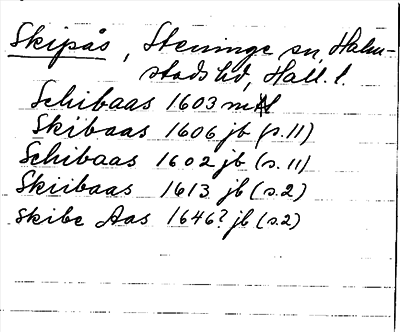 Skipås, Steninge sn, Halm-
stads hd, Hall. l.
Schibaas 1603 mtl
Skibaas 1606 jb (s. 11)
Schibaas 1602 jb (s. 11)
Skiibaas 1613 jb (s. 2)
Skibe Aas 1646? jb (s. 2)